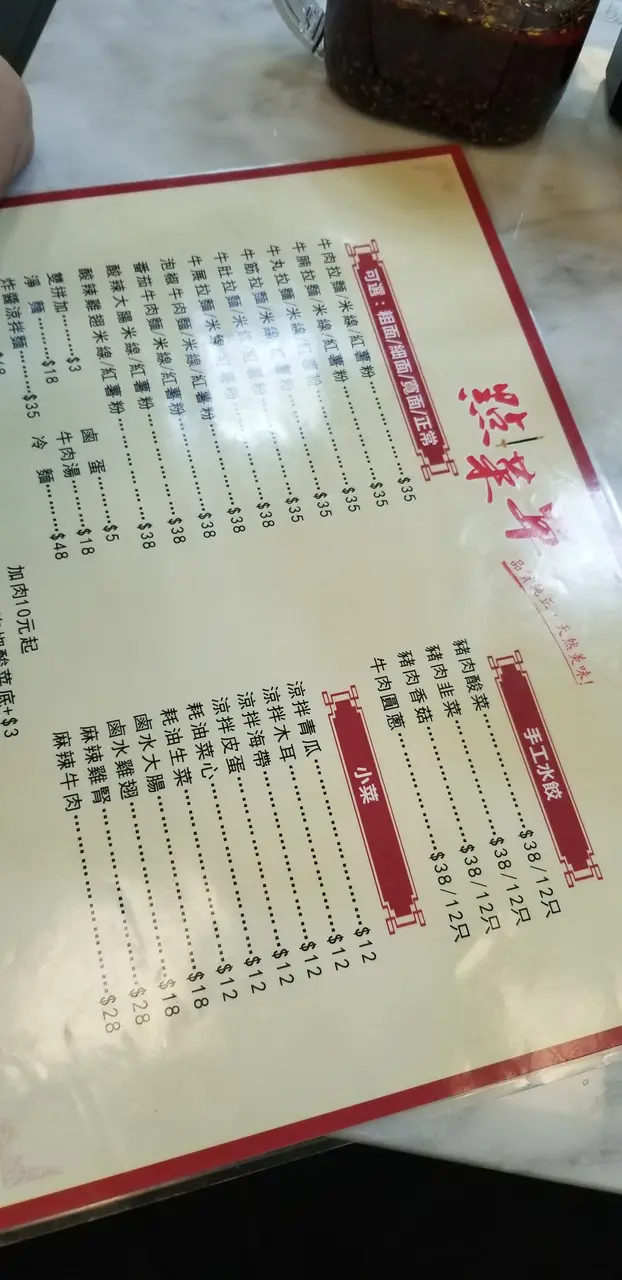 點菜單
品質純正，天然美味!
可選：粗面/細面/寬面/正常
牛肉拉麵/米線/紅薯粉……$35
牛腩拉麵/米線/紅薯粉……$35
牛丸拉麵/米線/紅薯粉……$35
牛筋拉麵/米線/紅薯粉……$35
牛肚拉麵/米線/紅薯粉……$35
牛展拉麵/米線/紅薯粉……$38
泡椒牛肉麵/米線/紅薯粉……$38
番茄牛肉麵/米線/紅薯粉……$38
酸辣大腸米線/紅薯粉……$38
酸辣雞翅米線/紅薯粉……$38
雙拼加……$3 鹵蛋……$5
淨麵……$18 牛肉湯……$18
炸醬涼拌麵……$35 冷麵……$48
加肉10元起
酸菜底+$3
手工水餃
豬肉酸菜……$38/12只
豬肉韭菜……$38/12只
豬肉香菇……$38/12只
牛肉圓蔥……$38/12只
小菜
涼拌青瓜……$12
涼拌木耳……$12
涼拌海帶……$12
涼拌皮蛋……$12
耗油菜心……$12
耗油生菜……$12
鹵水大腸……$18
鹵水雞翅……$18
麻辣雞腎……$28
麻辣牛肉……$28